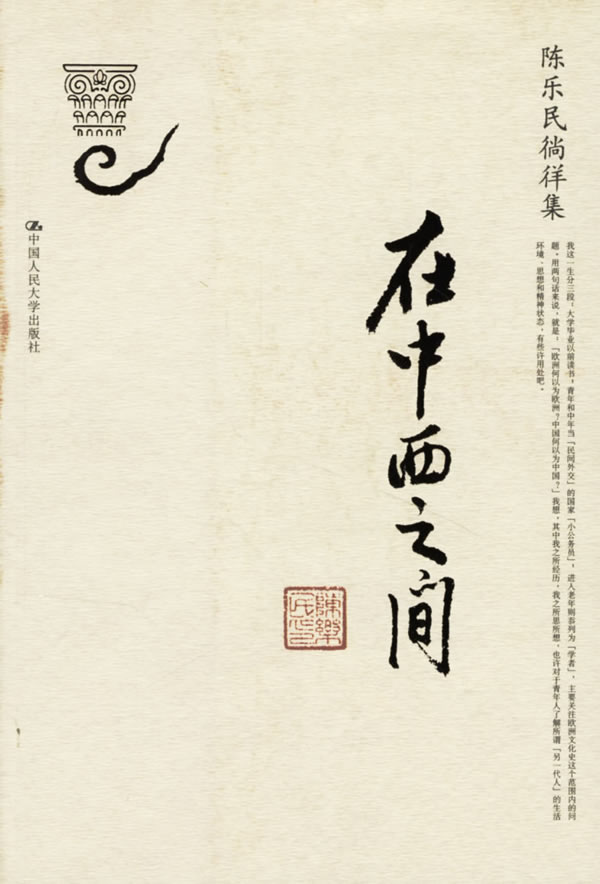 陈乐民徜徉集
我这一生分三段：大学毕业以前读书，青年和中年当「民间外交」的国家「小公务员」，进入老年则忝列为「学者」，主要关注欧洲文化史这个范围内的问
题，用两句话来说，就是：「欧洲何以为欧洲？中国何以为中国？」我想，其中我之所经历，我之所思所想，也许对于青年人了解所谓「另一代人」的生活
环境、思想和精神状态，有些许用处吧。
在中西之间
陳樂
民印
中国人民大学出版社